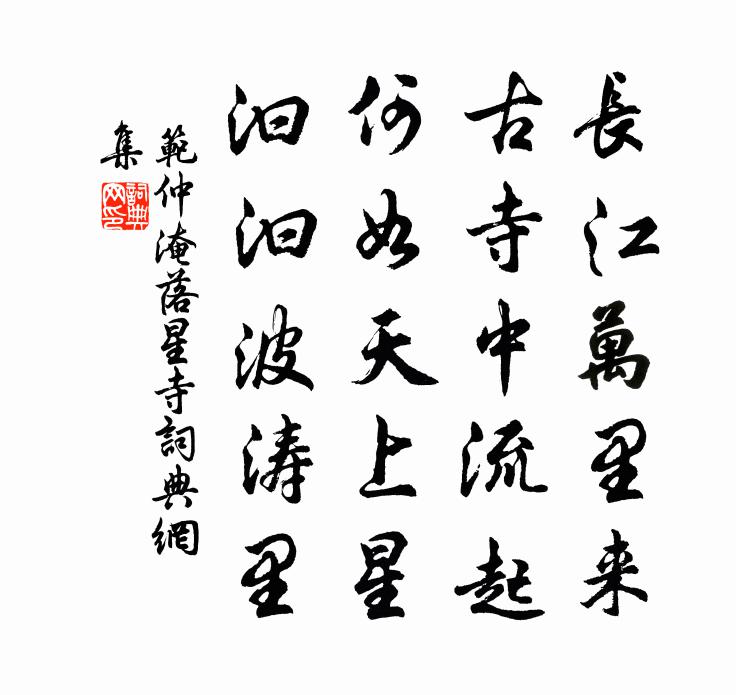 長江萬里来
古寺中流起
何如天上星
汩汩波涛里
範仲淹落星寺詞典網
集
詞典
网印